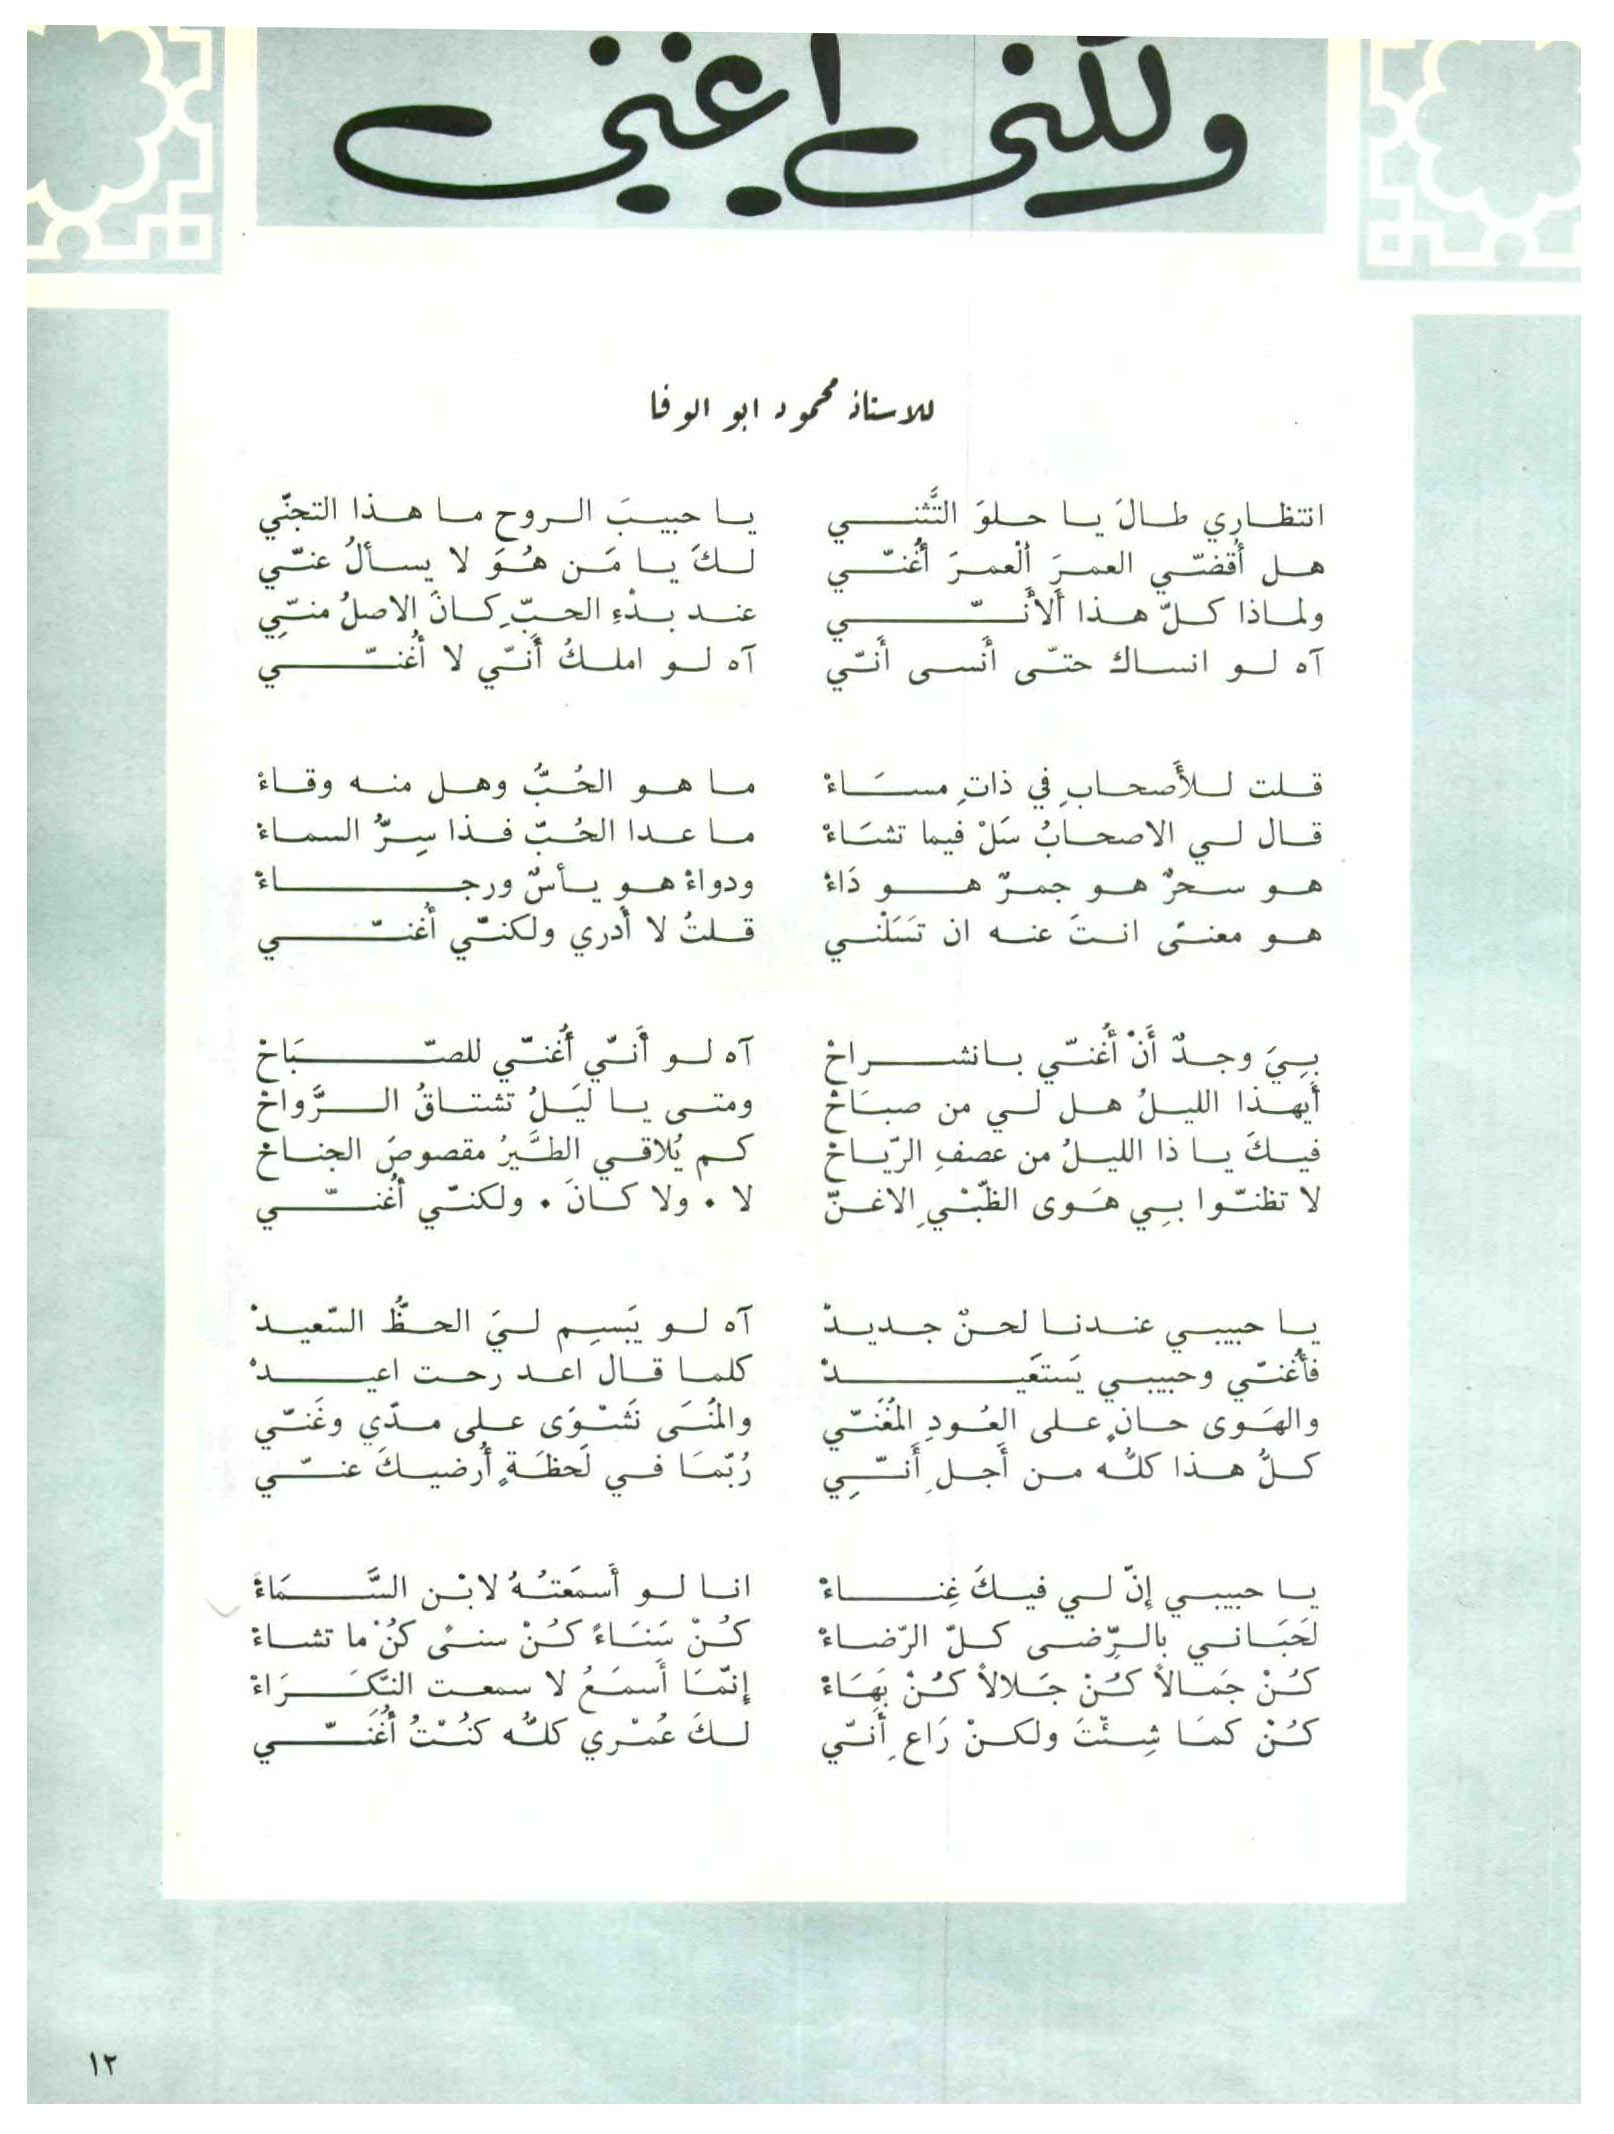 ولكني أغني
للاستاذ محمود ابو الوفا
انتظاري طالَ يا حلوَ التَّثني يا حبيبَ الروح ما هذا التجنّي
هل أُقضّي العمرَ ألْعمرَ أُغنّي لكَ يا مَن هُوَ لا يسألُ عنّي
ولماذا كلّ هذا ألأنّي عند بدْءِ الحبِّ كانَ الاصلُ منّيِ
آه لو انساك حتّى أَنسى أَنّي آه لو املكُ أَنّي لا أُغنّي
قلت للأَصحابِ في ذاتِ مسَاءْ ما هو الحُبُّ وهل منه وقاءْ
قال لي الاصحابُ سَلْ فيما تشَاءْ ما عدا الحُبّ فذا سِرُّ السماءْ
هو سحرٌ هو جمرٌ هو دَاءْ ودواءْ هو يأسٌ ورجاءْ
هو معنىً انتَ عنه ان تسَلْني قلتُ لا أَدري ولكنّي أُغنّي
بِيَ وجدٌ أَنْ أُغنّي بانشراحْ آه لو أَنّي أُغنّي للصّبَاحْ
أَيهذا الليلُ هل لي من صبَاحْ ومتى يا ليَلُ تشتاقُ الرَّواحْ
فيكَ يا ذا الليلُ من عصفِ الرّياحْ كم يُلاقي الطَّيرُ مقصوصَ الجناحْ
لا تظنّوا بِي هَوى الظّبْيِ الاغنّ لا . ولا كانَ . ولكنّي أُغنّي
يا حبيبي عندنا لحنٌ جديدْ آه لو يَبسِم ليَ الحظُّ السّعيدْ
فأُغنّي وحبيبي يَستعَيدْ كلما قال اعد رحت اعيدْ
والهَوى حانٍ على العُودِ المُغَنّي والمُنَى نَشْوَى على مدّي وغَنّي
كلُّ هذا كلُّه من أَجلِ أَنّيِ رُبّمَا في لَحظَةٍ أُرضيكَ عنّي
يا حبيبي إنّ لي فيكَ غِناءْ انا لو أَسمَعتُهُ لابْن السَّمَاءْ
لحَبَاني بالرّضى كلّ الرّضاءْ كُنْ سَنَاءً كُنْ سنىً كنُْ ما تشاءْ
كُنْ جَمالاً كُنْ جَلالاً كُنْ بَهَاءْ إنّمَا أَسمَعُ لا سمعت النَّكَرَاءْ
كُنْ كمَا شِئْتَ ولكنْ رَاعِ أَنّي لكَ عُمْري كلُّه كنُْتُ أُغَنّي
١٢